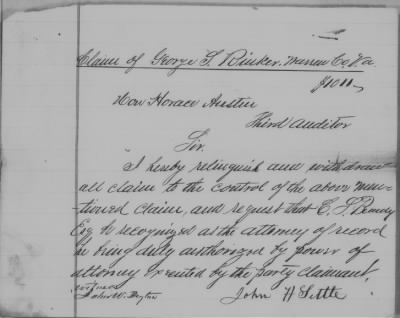 Claim of George T. Rinker. Warren Co. Va.
$1011-
Hon Horace Austin
Third Auditor
Sir.
I hereby relinquish and withdraw
all claim to the control of the above men-
tioned claim, and request that E. S.
Esq be recognized as the attorney of record
he being duly authorized by power of
attorney executed by the party claimant,
John H Settle
John W.